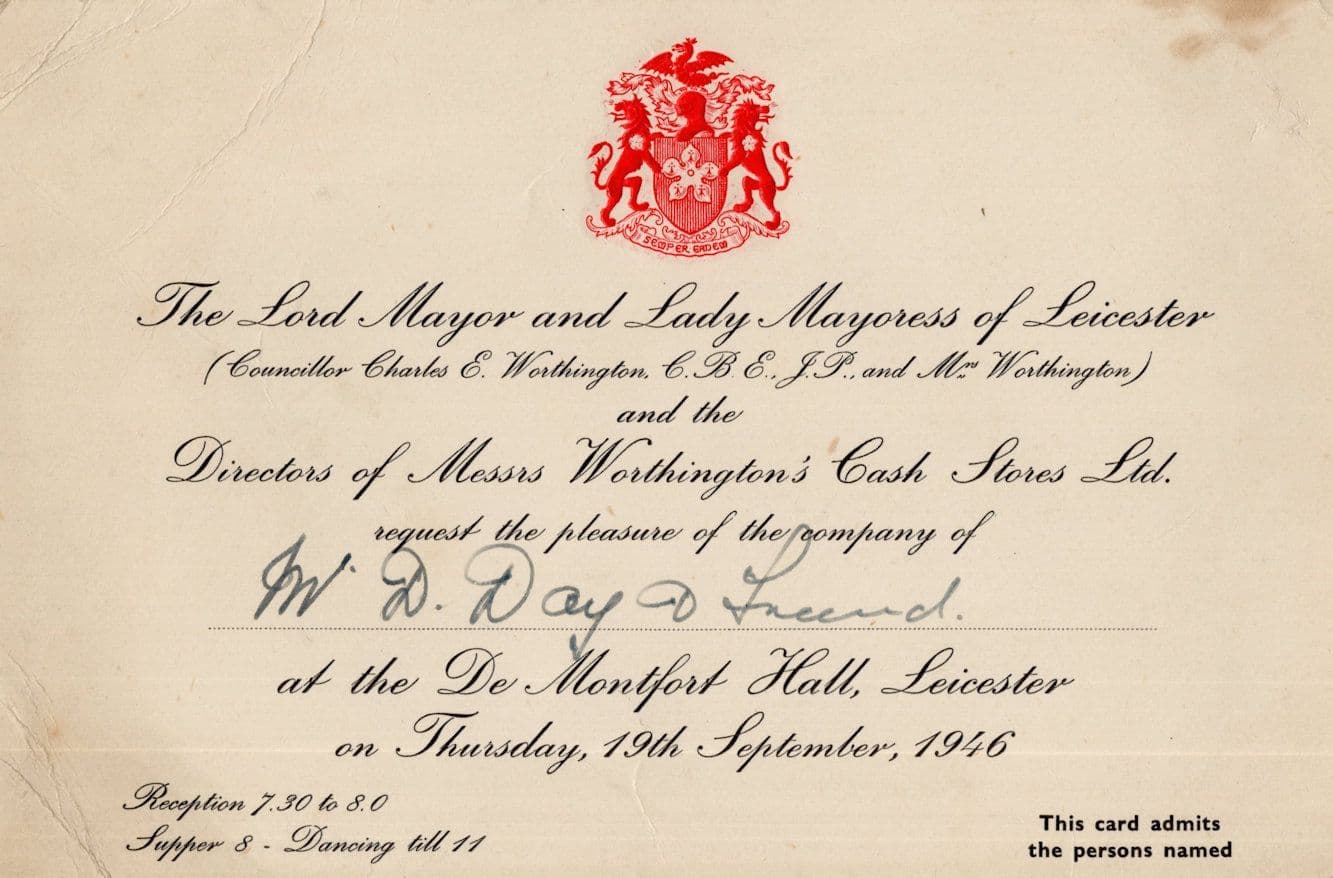 SEMPER EADEM
The Lord Mayor and Lady Mayoress of Leicester
(Councillor Charles E. Worthington, C.B.E., J.P., and Mrs Worthington)
and the
Directors of Messrs Worthington's Cash Stores Ltd.
request the pleasure of the company of
Mr D. Day & Friend.
at the De Montfort Hall, Leicester
on Thursday, 19th September, 1946
Reception 7.30 to 8.0
Supper 8 - Dancing till 11
This card admits
the persons named